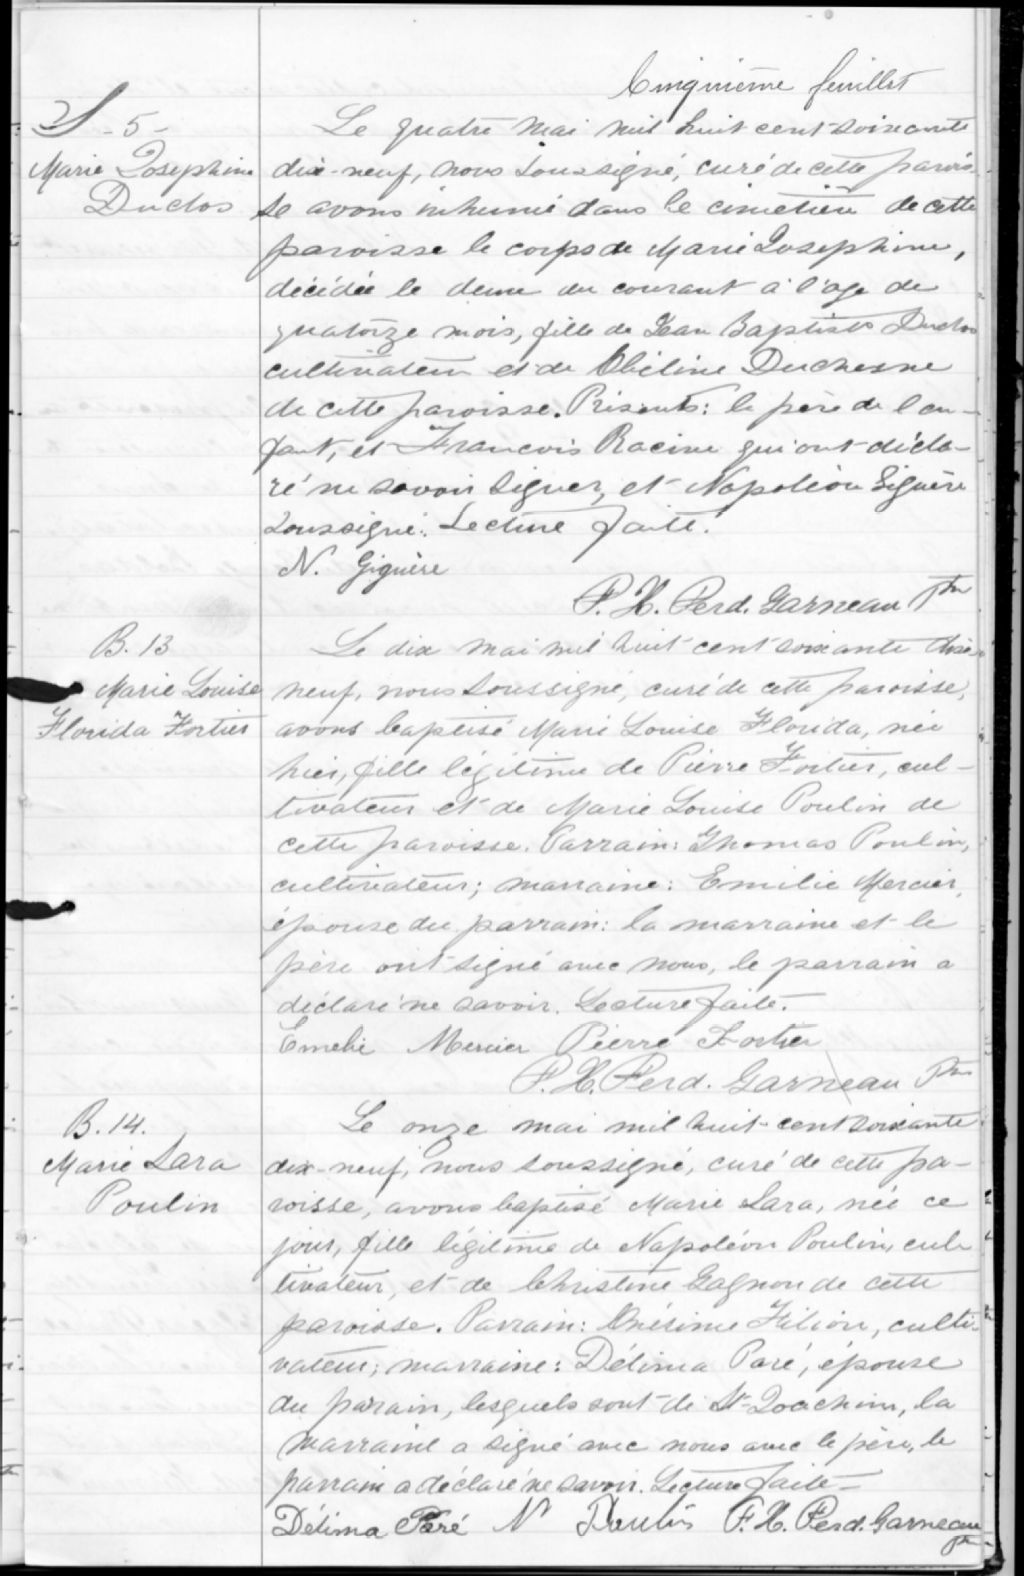 Cinquième feuillet
S - 5 -
Marie Josephine
Duclos
Le quatre mai mil huit cent soixante
dix-neuf, nous soussigné, curé de cette parois-
se avons inhumé dans le cimetière de cette
paroisse le corps de Marie Josephine,
décédée le deux du courant à l'age de
quatorze mois, fille de Jean Baptiste Duclos
cultivateur et de Obéline Duchesne
de cette paroisse. Présents: le père de l'en-
fant, et François Racine qui ont décla-
ré ne savoir signer, et Napoléon Giguère
soussigné. Lecture faite.
N. Giguère
F. X. Ferd. Garneau Ptre
B. 13
Marie Louise
Florida Fortier
Le dix mai mil huit cent soixante dix-
neuf, nous soussigné, curé de cette paroisse,
avons baptisé Marie Louise Florida, née
hier, fille légitime de Pierre Fortier, cul-
tivateur et de Marie Louise Poulin de
cette paroisse. Parrain: Thomas Poulin,
cultivateur; marraine: Emilie Mercier,
épouse du parrain: la marraine et le
père ont signé avec nous, le parrain a
déclaré ne savoir. Lecture faite.
Emelie Mercier Pierre Fortier
F. X. Ferd. Garneau Ptre
B. 14.
Marie Lara
Poulin
Le onze mai mil huit cent soixante
dix-neuf, nous soussigné, curé de cette pa-
roisse, avons baptisé Marie Lara, née ce
jour, fille légitime de Napoléon Poulin, cul-
tivateur, et de Christine Gagnon de cette
paroisse. Parrain: Onésime Filion, culti-
vateur; marraine: Délima Paré, épouse
du parrain, lesquels sont de St-Joachim, la
marraine a signé avec nous avec le père, le
parrain a déclaré ne savoir. Lecture faite
Délima Paré N Poulin F. X. Ferd. Garneau
Ptre